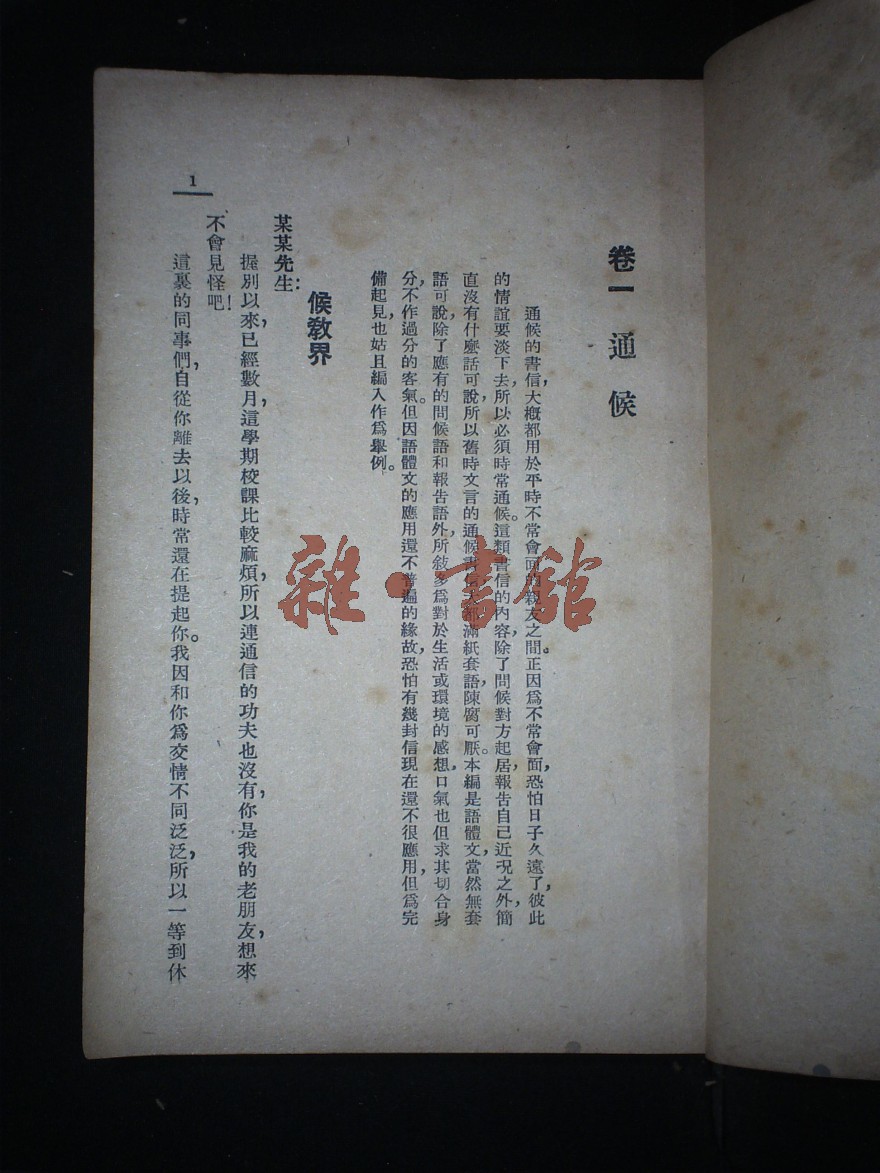 卷一 通候
通候的書信，大概都用於平時不常會面的親友之間。正因爲不常會面，恐怕日子久遠了，彼此
的情誼要淡下去，所以必須時常通候。這類書信的內容，除了問候對方起居，報告自己近况之外，簡
直沒有什麼話可說，所以舊時文言的通候書信，滿紙套語，陳腐可厭。本編是語體文，當然無套
語可說，除了應有的問候語和報告語外，所敍多爲對於生活或環境的感想，口氣也但求其切合身
分，不作過分的客氣。但因語體文的應用還不普遍的緣故，恐怕有幾封信現在還不很應用，但爲完
備起見，也姑且編入作爲舉例。
候教界
某某先生：
握別以來，已經數月，這學期校課比較麻煩，所以連通信的功夫也沒有，你是我的老朋友，想來
不會見怪吧！
這裏的同事們，自從你離去以後，時常還在提起你。我因和你爲交情不同泛泛，所以一等到休
1
雜·書館